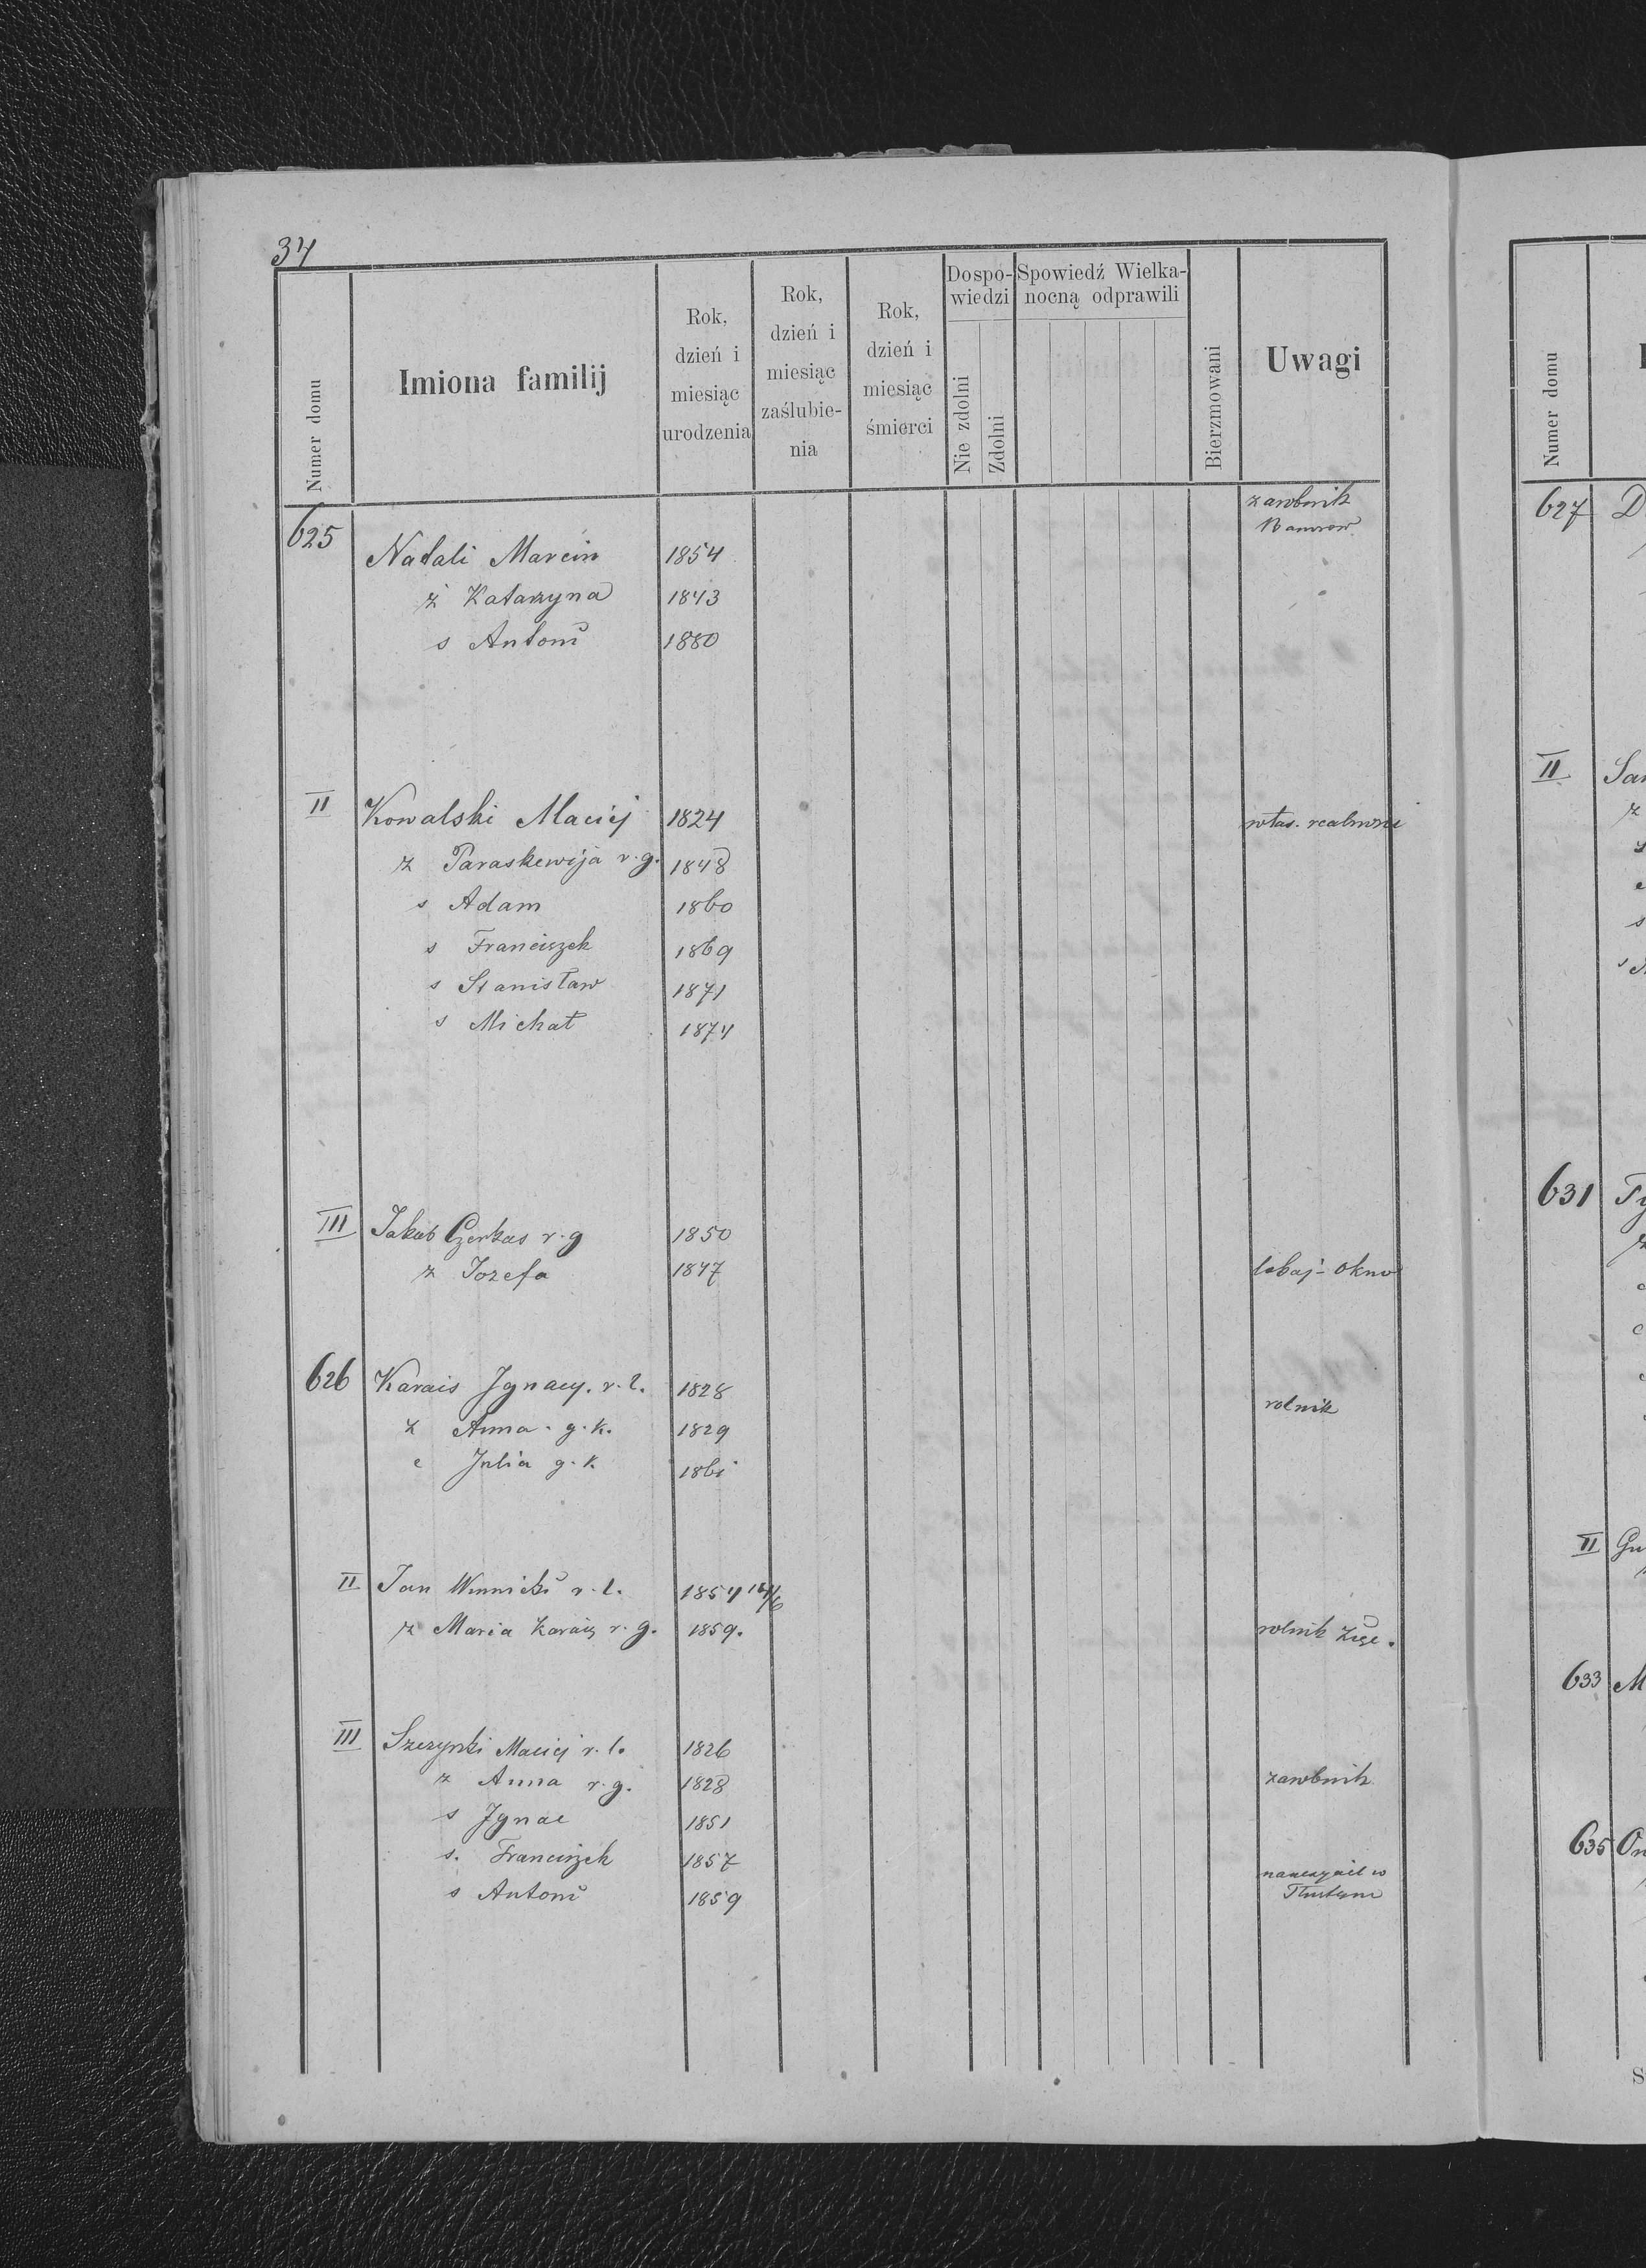 34
Numer domu
Imiona familij
Rok, dzień i miesiąc urodzenia
Rok, dzień i miesiąc zaślubienia
Rok, dzień i miesiąc śmierci
Dospowiedzi
Nie zdolni
Zdolni
Spowiedź Wielkanocną odprawili
Bierzmowani
Uwagi
zarobnik
625 Natali Marcin 1854
ż Katarzyna 1843
s Antoni 1880
II Kowalski Maciej 1824 włas. realności
z Paraskewija r. g. 1848
s Adam 1860
s Franciszek 1869
s Stanisław 1871
s Michał 1874
III Jakób Czerkas r. g 1850
z Jozefa 1847 Okno
626 Karais Ignacy. r. l. 1828 rolnik
z Anna g. k. 1829
c Julia g. k. 1861
II Jan Winnicki r. l. 1854 14/6
z Maria Karaig r. g. 1859. rolnik
III Szczyrski Maciej r. l. 1826
z Anna r. g. 1828 zarobnik
s Ignac 1851
s. Franciszek 1857 nauczyciel w
s Antoni 1859 Tłustym
Numer domu
627
II
631
II
633
635